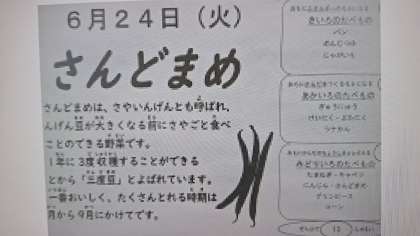 6月24日（火）
さんどまめ
さんどまめは、さやいんげんとも呼ばれ、
んげん豆が大きくなる前にさやごと食べ
ことのできる野菜です。
1年に3度収穫することができる
とから「三度豆」とよばれています。
一番おいしく、たくさんとれる時期は
月から9月にかけてです。
きいろのたべもの
パン
めんじつゆ
じゃがいも
あかいろのたべもの
ぎゅうにゅう
けいにく・ぶたにく
ツナかん
みどりいろのたべもの
たまねぎ・キャベツ
にんじん・さんどまめ
グリンピース
コーン